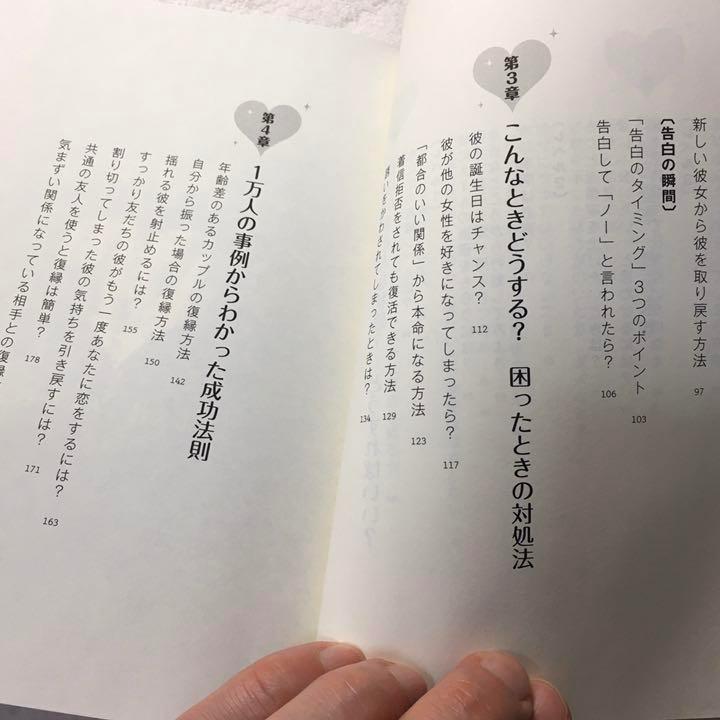 新しい彼女から彼を取り戻す方法 97
〔告白の瞬間〕
「告白のタイミング」3つのポイント 103
告白して「ノー」と言われたら? 106
第3章 こんなときどうする? 困ったときの対処法
彼の誕生日はチャンス? 112
彼が他の女性を好きになってしまったら? 117
「都合のいい関係」から本命になる方法 123
着信拒否をされても復活できる方法 129
をかわされてしまったときは? 134
第4章 1万人の事例からわかった成功法則
年齢差のあるカップルの復縁方法
自分から振った場合の復縁方法 142
揺れる彼を射止めるには? 150
すっかり友だちの彼がもう一度あなたに恋をするには? 155
割り切ってしまった彼の気持ちを引き戻すには? 163
共通の友人を使うと復縁は簡単? 171
気まずい関係になっている相手との復縁 178